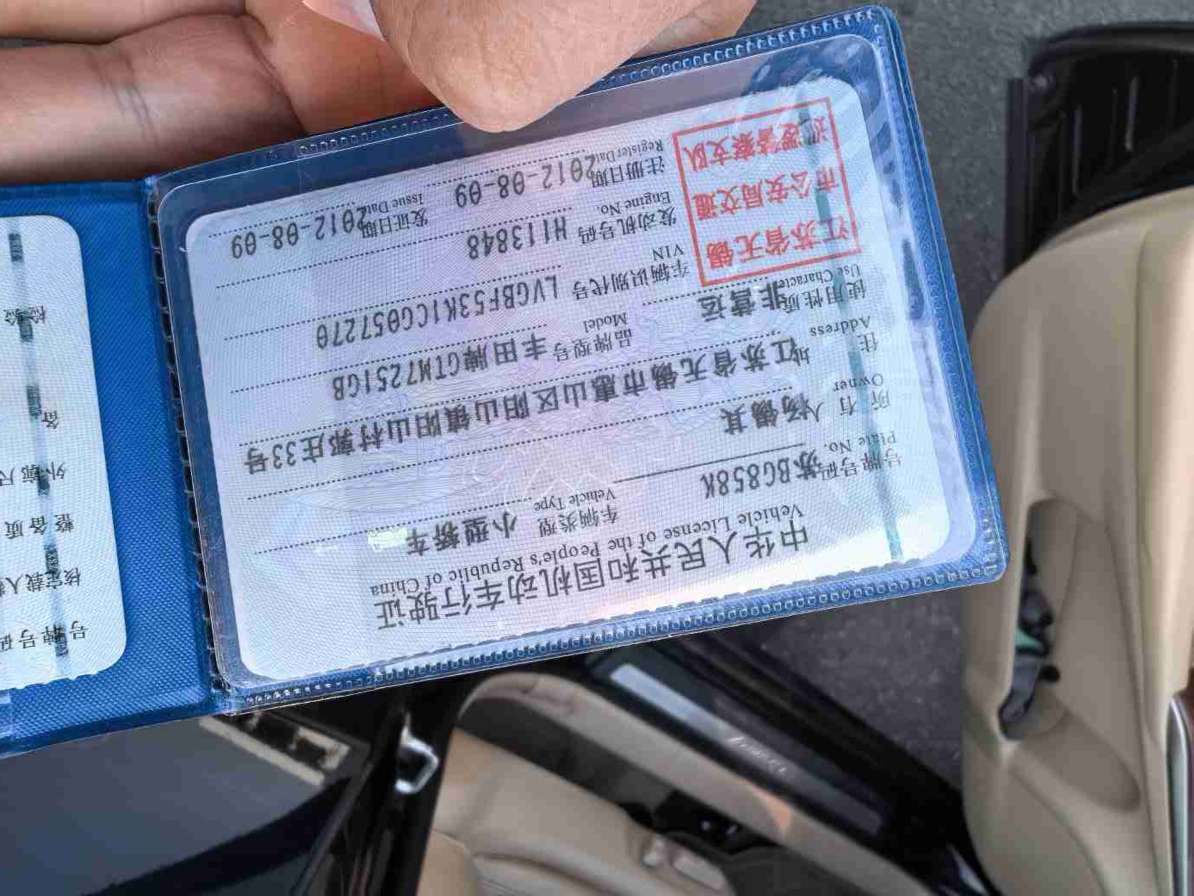 中华人民共和国机动车行驶证
Vehicle License of the People's Republic of China
号牌号码 苏BG858K
Plate No.
车辆类型 小型轿车
Vehicle Type
所有人 杨锡其
Owner
住址 江苏省无锡市惠山区阳山镇阳山村郭庄33号
Address
使用性质 非营运
Use Character
品牌型号 丰田牌GTM7251GB
Model
江苏省无锡
市公安局交通
巡逻警察支队
车辆识别代号 LVGBF53K1CG057270
VIN
发动机号码 H113848
Engine No.
注册日期 2012-08-09
Register Date
发证日期 2012-08-09
Issue Date
号牌号码
核定载人
整备质
外廓尺
备
检验